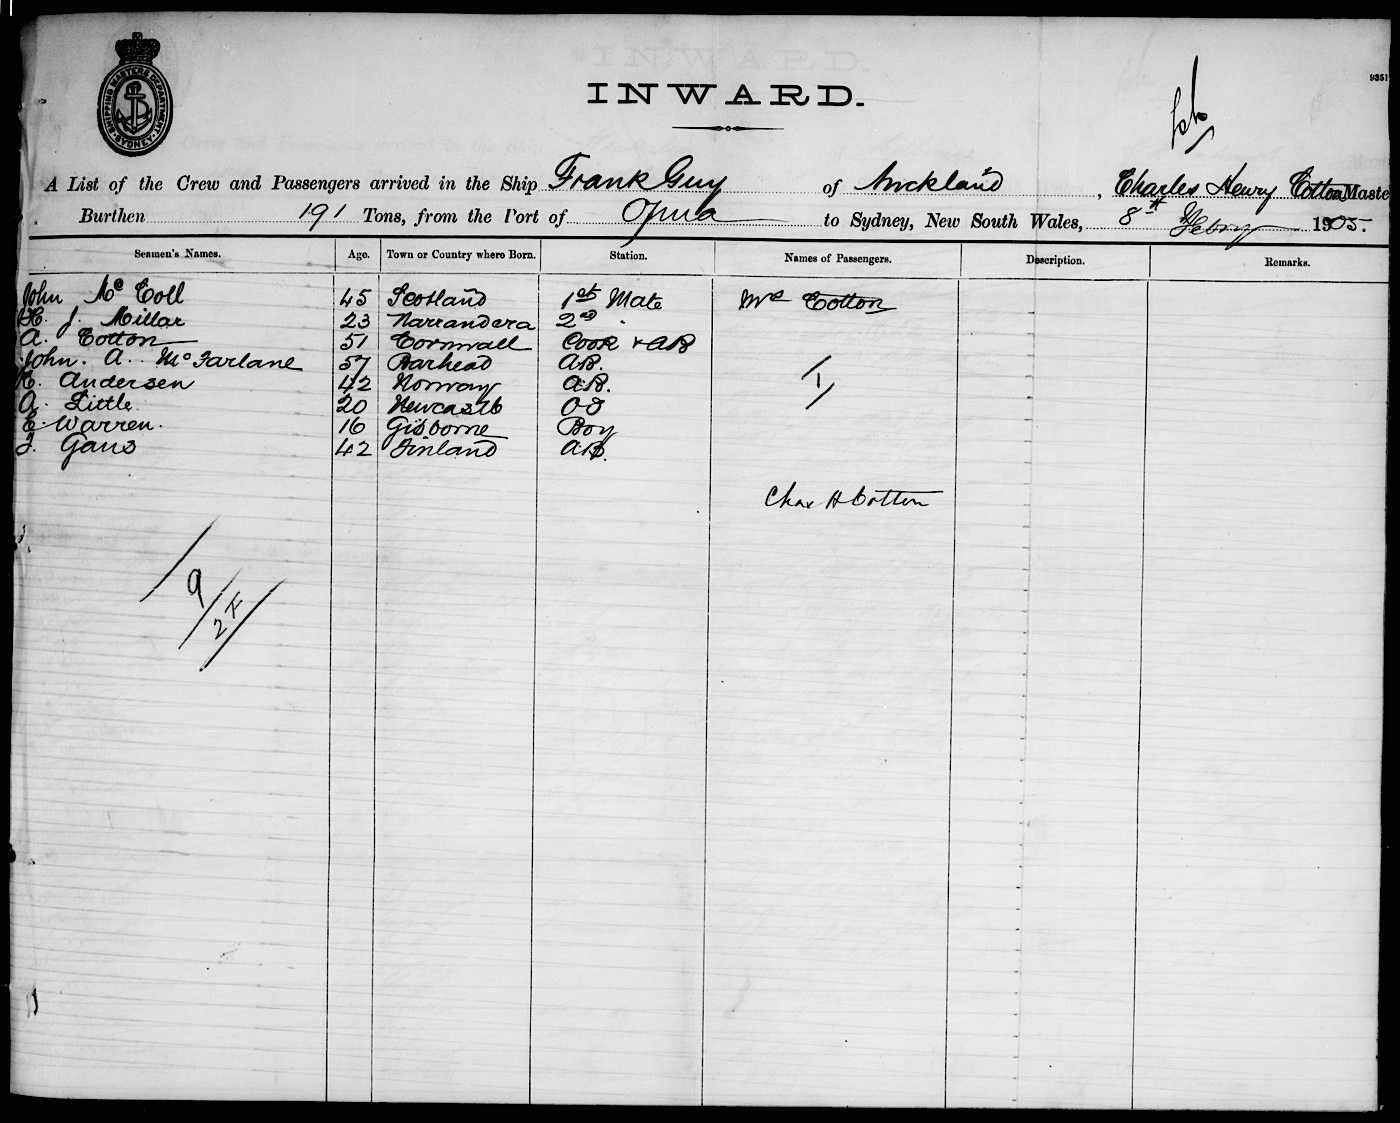 SHIPPING MASTERS DEPARTMENT SYDNEY
9351
INWARD.
A List of the Crew and Passengers arrived in the Ship Frank Guy of Auckland, Charles Henry Cotton Maste
Burthen 191 Tons, from the Port of Opua to Sydney, New South Wales, 8th Febry 1905.
Seamen's Names. Age. Town or Country where Born. Station. Names of Passengers. Description. Remarks.
John Mc Coll 45 Scotland 1st Mate Mrs Cotton
H. J. Millar 23 Narrandera 2nd "
A. Cotton 51 Cornwall Cook + AB
John. A. McFarlane 57 Barhead AB.
C. Andersen 42 Norway AB.
A. Little 20 Newcastle OS
E. Warren. 16 Gisborne Boy
J. Gaus 42 Finland AB.
1
Chas H Cotton
9
2 F